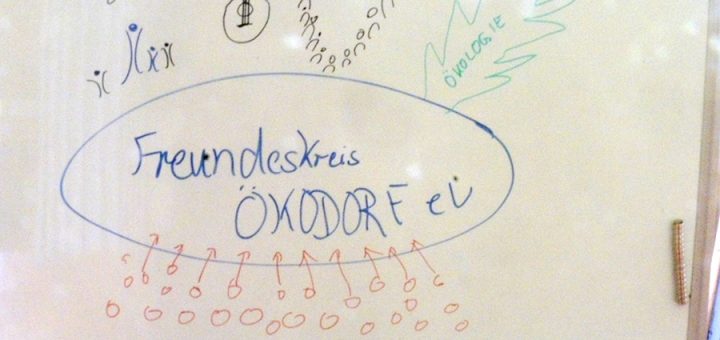 ÖKOLOGIE
Freundeskreis
ÖKODORF eV